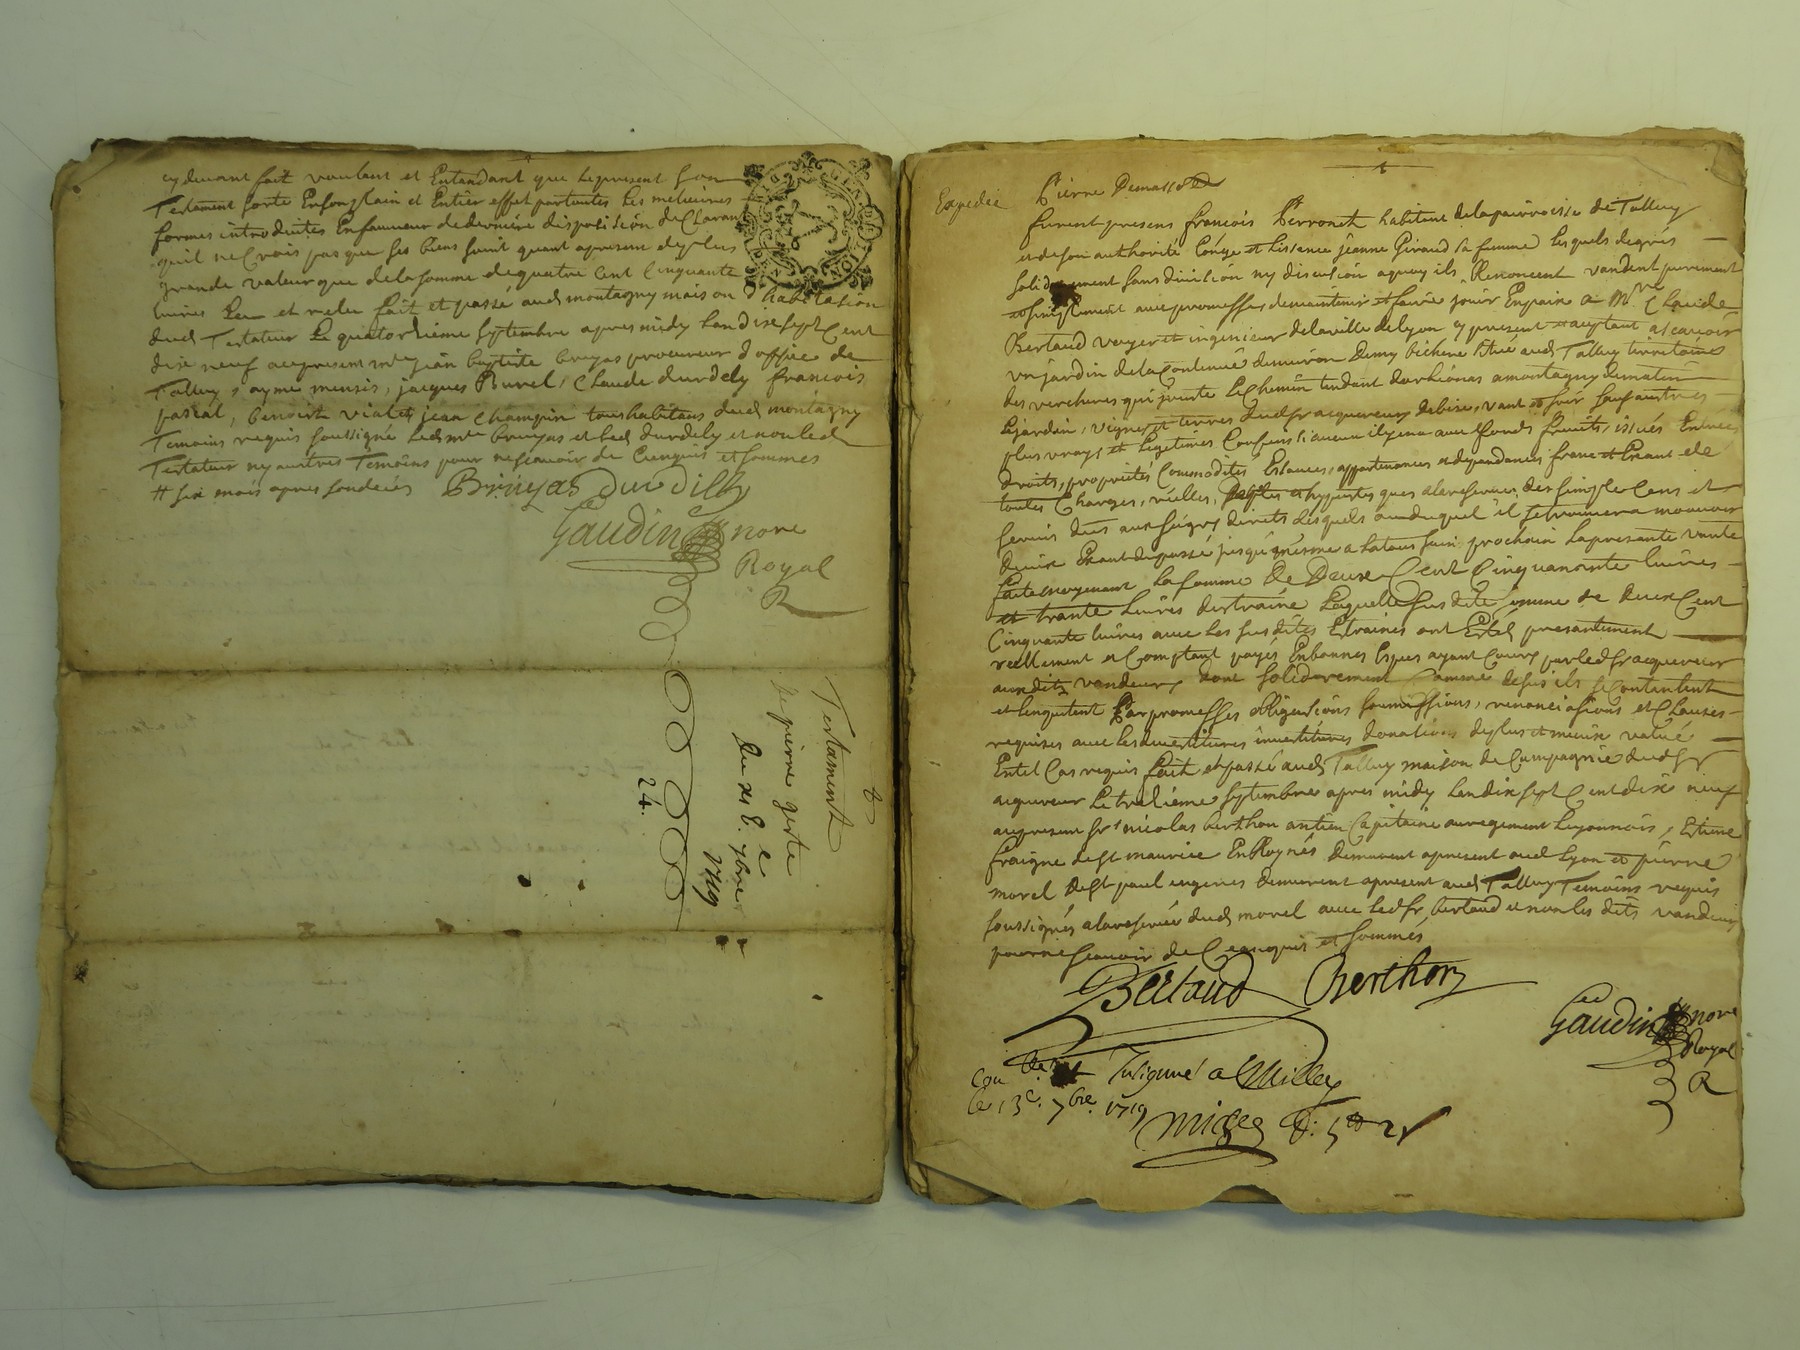 cy devant fait voulant et Entandant que le present son
Testament sorte En son plain et Entier effet par toutes les melieures
formes introduites En faumeur de derniere disposision declarant
quil ne Crois pas que ses biens soint quant a present de plus
grande valeur que de la somme de quatre Cent Cinquante
livres Leu et releu fait et passé aud montagny maison d'habitasion
dud Testateur Le quatorsieme septembre apres midy lan dix sept Cent
dix neuf au present mtre jean baptiste bruyas procureur d'office de
Talluy s' ayme mensis, jacques Burel, Claude durdely francois
pascal, benoist vial et jean Champin tous habitans dud montagny
Temoins requis soussigné led mtre bruyas et led durdely et non led
Testateur ny autres Temoins pour ne scavoir de Cenquis et sommes
# six mois apres son deces Bruyas Durdilly
Gaudin nore
Royal
R
8
Testament
de pierre
Du xi 8. 7bre
1719
24.
Expedié
Pierre
furent presens francois Perronet habitant de la parroisse de Talluy
et de son authorité Conge et lissence jeanne Giraud sa femme lesquels de grés
solidairement sans division ny discusion a quoy ils Renoncent vandent purement
et simplement avec promesses de maintenir et faire jouir En paix a Mre Claude
Bertaud voyer et ingenieur de la ville de lyon cy present et aceptant a scavoir
un jardin de la Contenue denviron demy bichere situé aud Talluy territoire
des vercheres qui jouxte le Chemin tendant dorliénas a montagny de matin
le jardin, vignes et terres dudsr acquereur de bise, vant et soir sauf autres
plus vrays et legitimes Confins si aucun il y en a avec ses fonds fruits, issues Entrees
droits, proprietés Commodités Esances, appartenances et dependances franc et Exant de
toutes Charges, vielles, et hypoteques a la reserve des simple Cens et
servis dus aux seigrs directs desquels ou duquel il se trouvera mouvoir
quitte Exant du passé jusqu'a mesme a la tous sain prochain la presante vante
faite moyenant la somme de Deux Cent Cinquanante livres
et trante livres destraine laquelle susdite somme de deux Cent
Cinquante livres avec les susdites Etraines ont Estés presantement
reellement et Comptant payés En bonnes Especes ayant Cours par led sr acquereur
auxdits vandeurs dont solidairement Comme desus ils se Contantent
et lenquitent Par promesses obligasions soumissions, renonciasions et Clauses
requises avec les devestitures investitures donations de plus et mieux valué
En tel Cas requis fait et passé aud Talluy maison de Campagnie dudsr
acquereur le treisieme septembre apres midy lan dix sept Cent dix neuf
au present sr nicolas berthon antien Capitaine au regiment Leyonnois, Estime
fraigne de st maurice En Roynés demeurent a present aud Lyon et pierre
morel de st paul engeres demeurent a present aud Talluy Temoins requis
soussignés a la reserve dud morel avec led sr bertaud et non les dits vandeurs
pour ne scavoir de Cenquis et sommés
Bertaud Berthon
Gaudin nore
Royal
R
Con le et Insigné a Millery
le 13e. 7bre. 1719